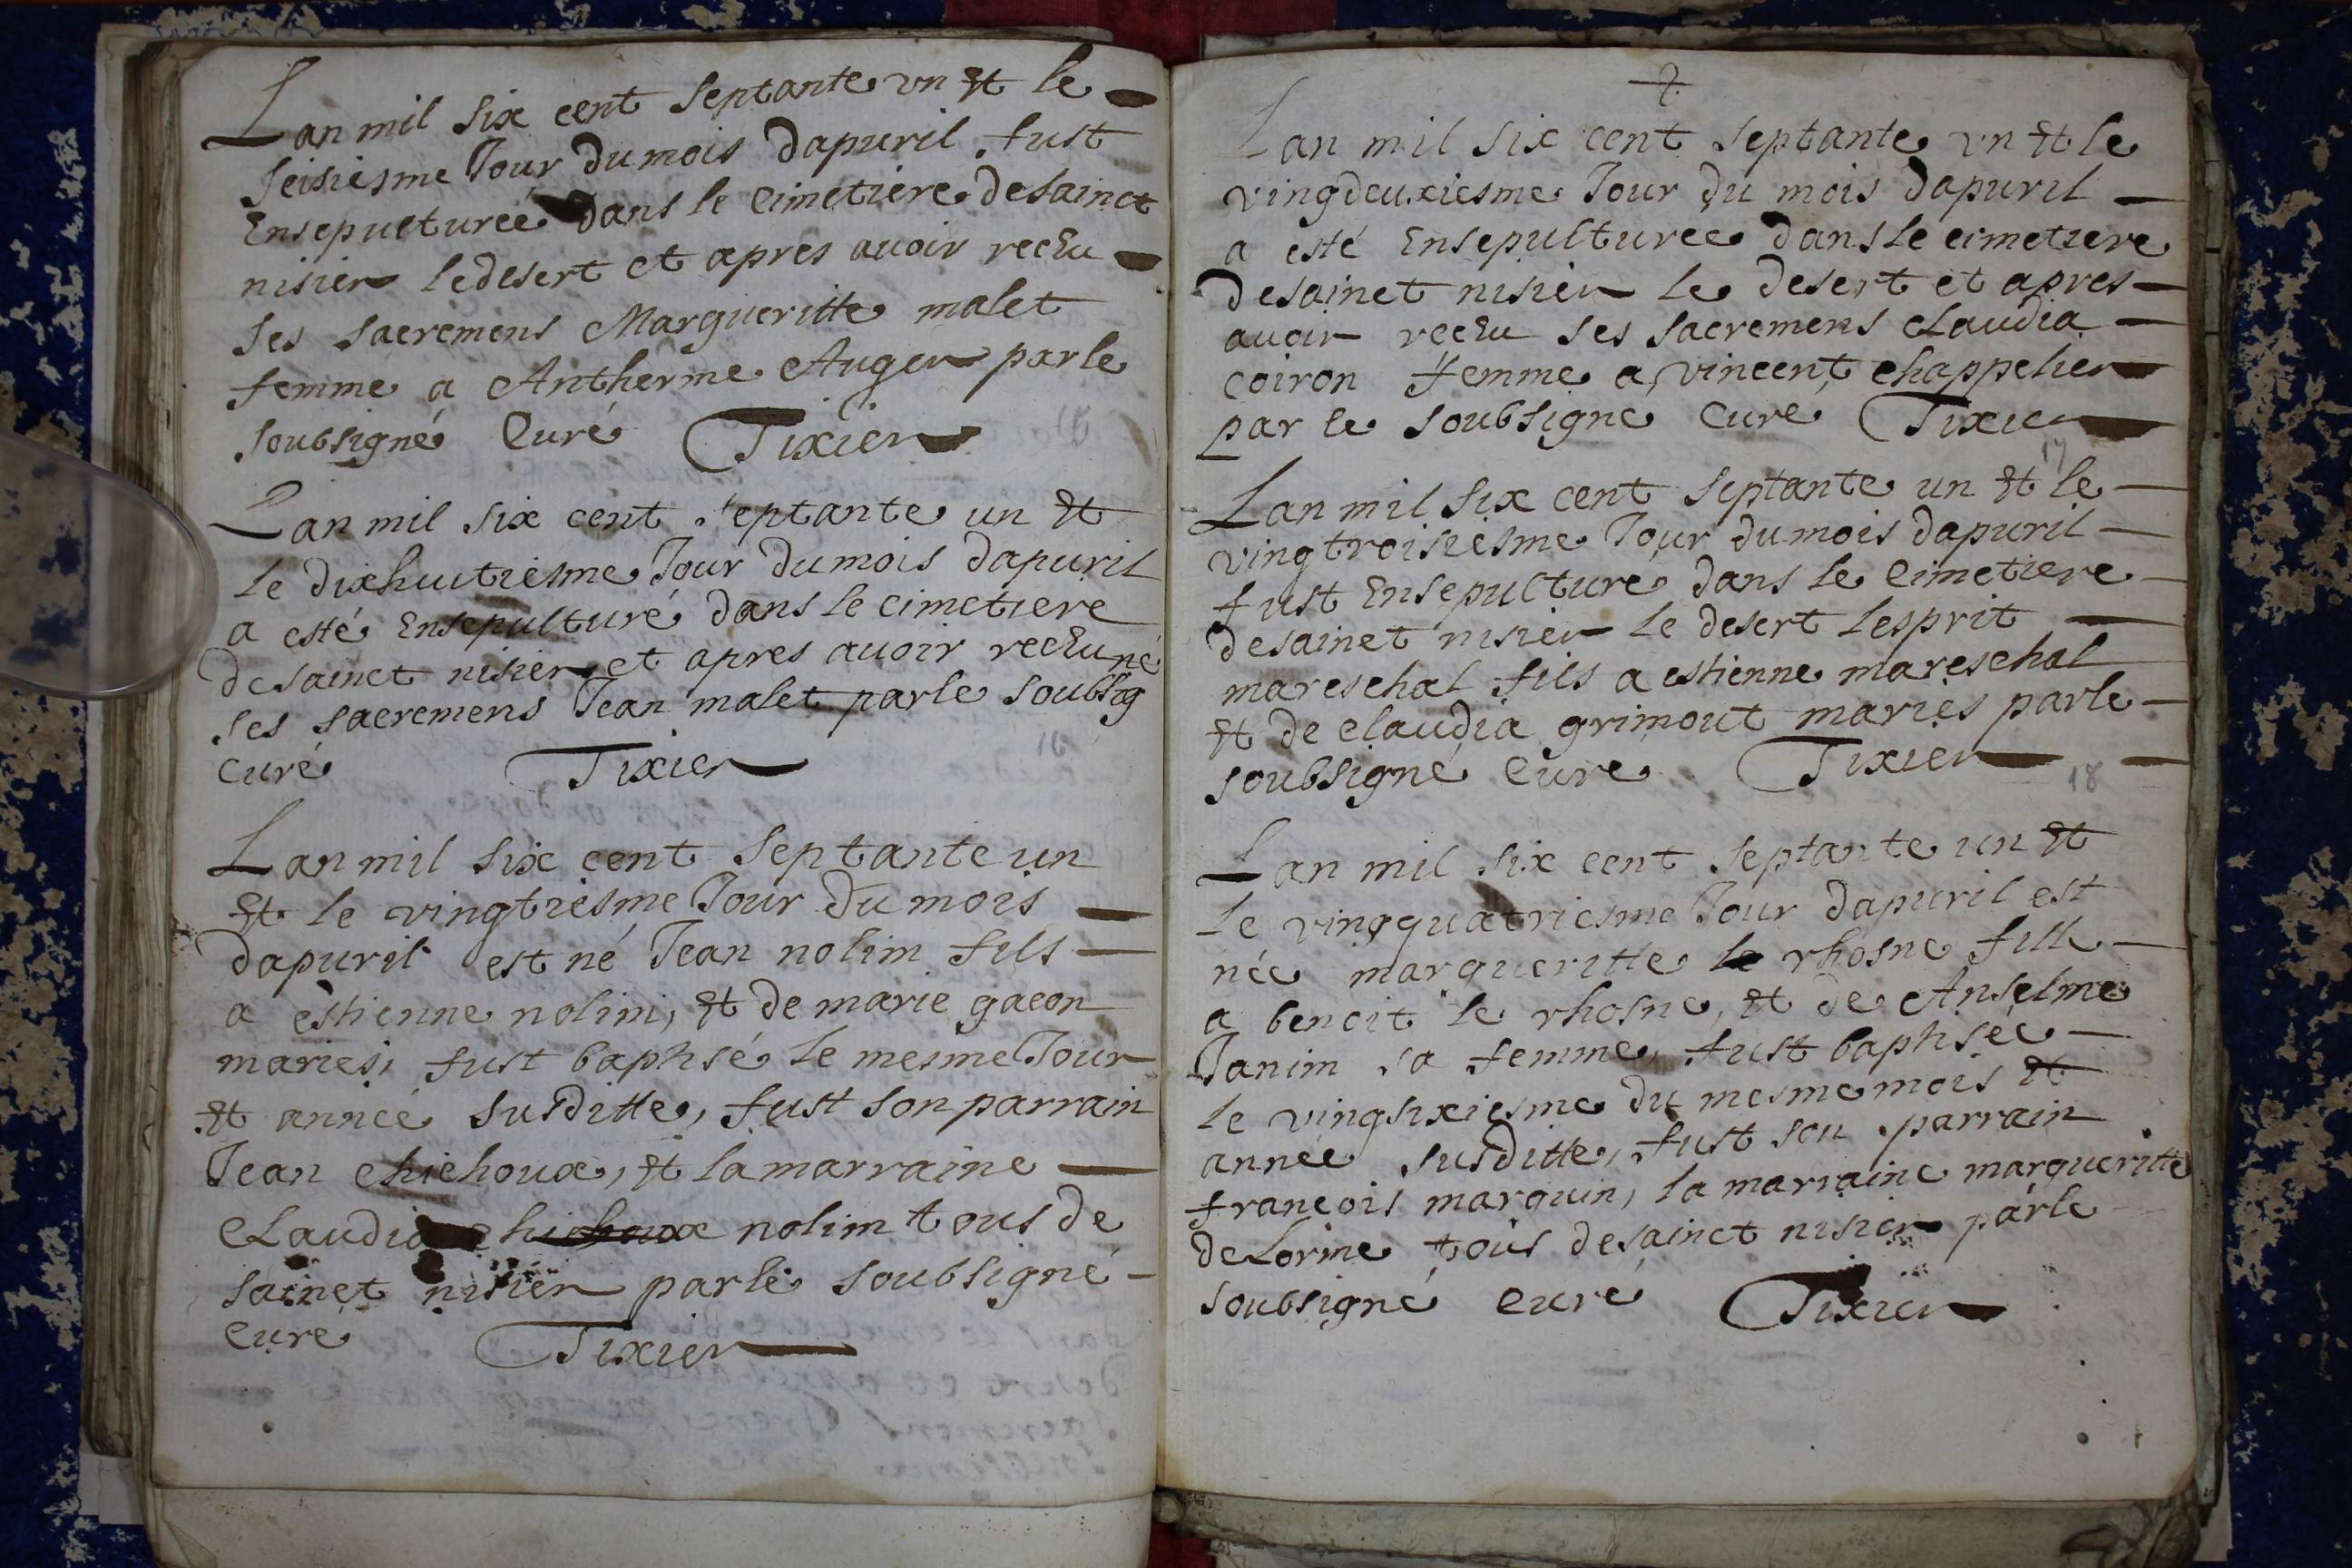 Lan mil six cent septante vn et le
seisiesme Jour du mois dapuril fust
Ensepulturée dans le Cimetiere de sainct
nisier le desert et apres auoir recëu
ses sacremens Margueritte malet
femme a Antherme Auger par le
soubsigné Curé Tixier
Lan mil six cent septante un et
le dixhuitiesme Jour du mois dapuril
a esté Ensepulturé dans le cimetiere
de sainct nisier et apres auoir recëu
ses sacremens Jean malet par le soubsigné
curé Tixier
Lan mil six cent septante un
et le vingtiesme Jour du mois
dapuril est né Jean nolim fils
a estienne nolim, et de marie gacon
mariés, fust baptisé le mesme Jour
et année susditte, fust son parrain
Jean chichoux, et la marraine
Claudia chichoux nolim tous de
sainct nisier par le soubsigné
Curé Tixier
Lan mil six cent septante vn et le
vingdeuxiesme Jour du mois dapuril
a esté Ensepulturee dans le cimetiere
de sainct nisier le desert et apres
auoir recëu ses sacremens Claudia
coiron femme a vincent chappelier
par le soubsigné Curé Tixier
17
Lan mil six cent septante un et le
vingtroisiesme Jour du mois dapuril
fust Ensepulturé dans le Cimetiere
de sainct nisier le desert lesprit
mareschal fils a estienne mareschal
et de claudia grimout mariés par le
soubsigné Curé Tixier
18
Lan mil six cent septante un et
le vingquatriesme Jour dapuril est
née margueritte le rhosne fille
a benoit le rhosne, et de Anselme
Janim sa femme, fust baptisée
le vingsixiesme du mesme mois et
année susditte, fust son parrain
françois marquin, la marraine margueritte
deLorme tous de sainct nisier par le
soubsigné curé Tixier